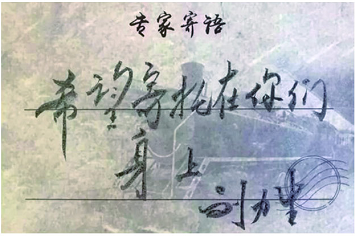 专家寄语
希望寄托在你们
身上
刘力生